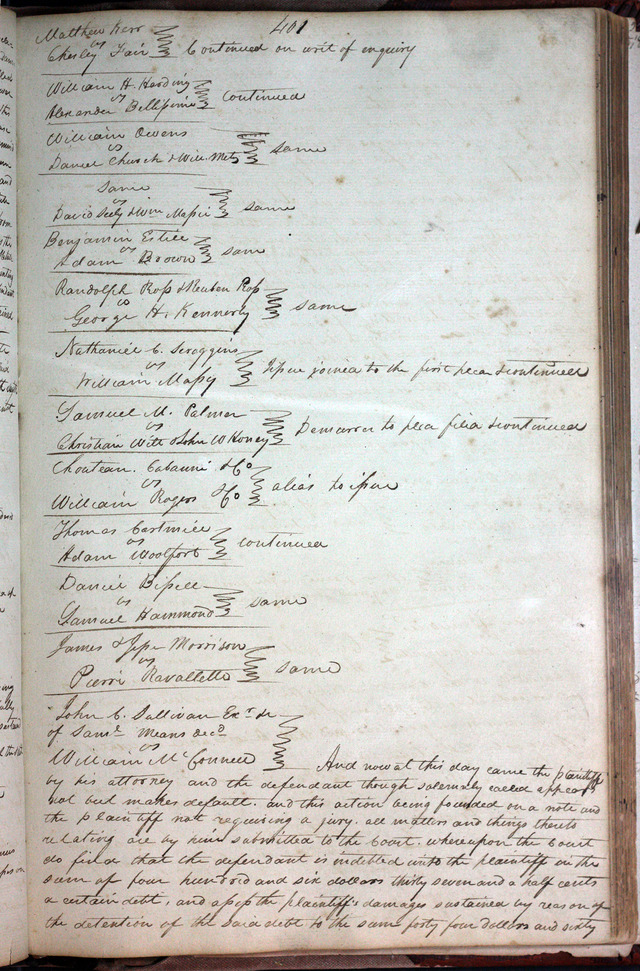 401
Matthew Kerr
vs
Chesley Fair
Continued on writ of inquiry
William H. Harding
vs
Alexander Bellissime
continued
William Owens
vs
Daniel Church & Will. Metz
same
same
vs
David Seely & Wm Massie
same
Benjamin Estill
vs
Adam Brown
same
Randolph Ross & Reuben Ross
vs
George H. Kennerly
same
Nathaniel C. Scroggins
vs
William Massy
Issue joined to the first plea & continued
Samuel M. Palmer
vs
Christian Witt & John W Honey
Demurrer to plea filed & continued
Chouteau. Cabanné & Co
vs
William Rogers & Co
alias to issue
Thomas Cartmill
vs
Adam Woolfort
continued
Daniel Bissell
vs
Samuel Hammond
same
James & Jesse Morrison
vs
Pierri Ravalletto
same
John C. Sullivan Exr &c
of Saml Means decd
vs
William McConnell
And now at this day came the plaintiff
by his attorney and the defendant though solemnly called appears
not but makes default. and this action being founded on a note and
the plaintiff not requiring a jury. all matters and things thereto
relating are by him submitted to the Court. whereupon the Court
do find that the defendant is indebted unto the plaintiff in the
sum of four hundred and six dollars thirty seven and a half cents
a certain debt, and assess the plaintiff's damages sustained by reason of
the detention of the said debt to the sum forty four dollars and sixty